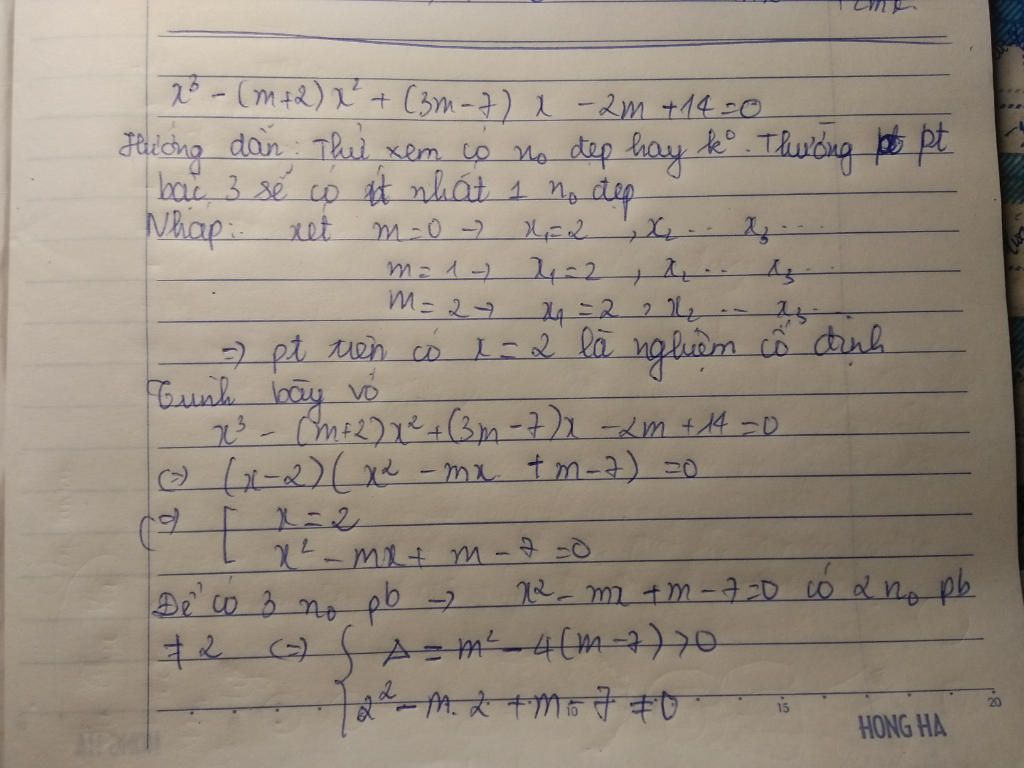 x³ - (m+2)x² + (3m-7)x - 2m + 14 = 0
Hướng dẫn: Thử xem có n₀ đẹp hay k⁰. Thường pt
bậc 3 sẽ có ít nhất 1 n₀ đẹp
Nháp: xét m = 0 → x₁ = 2 , x₂ ... x₃ ...
m = 1 → x₁ = 2 , x₂ ... x₃ ...
m = 2 → x₁ = 2 , x₂ ... x₃ ...
⇒ pt trên có x = 2 là nghiệm cố định
Trình bày vở
x³ - (m+2)x² + (3m-7)x - 2m + 14 = 0
⇔ (x-2)(x² - mx + m - 7) = 0
⇔ [ x = 2
x² - mx + m - 7 = 0
Để có 3 n₀ pb → x² - mx + m - 7 = 0 có 2 n₀ pb
≠ 2 ⇔ { Δ = m² - 4(m-7) > 0
2² - m.2 + m - 7 ≠ 0
10 15 20
HONG HA